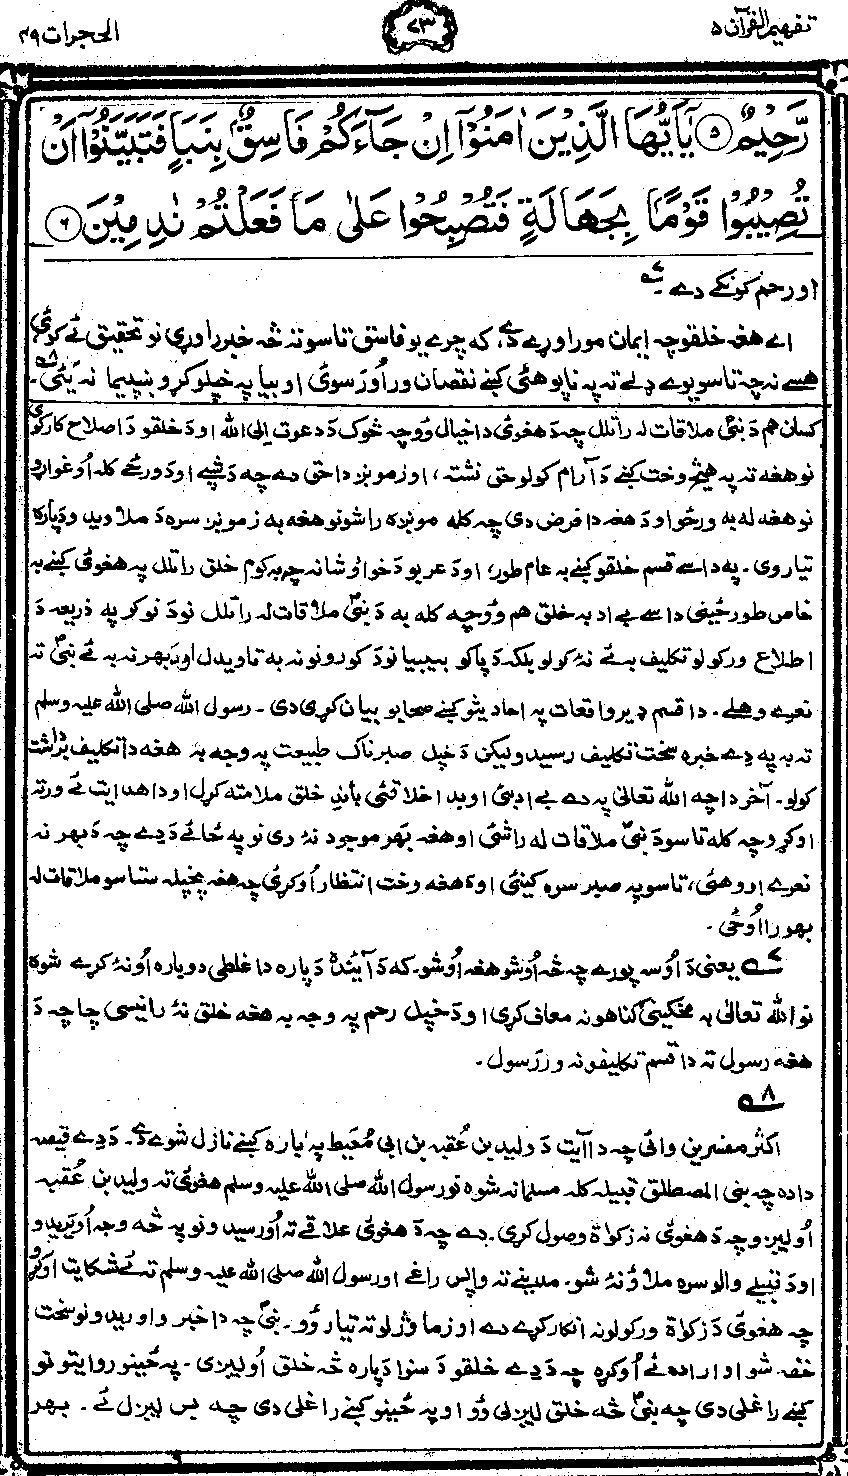 تفهیم القرآن ۵
۷۳
الحجرات ۴۹
رَّحِيْمٌ ۵ يٰۤاَيُّهَا الَّذِيْنَ اٰمَنُوْۤا اِنْ جَآءَكُمْ فَاسِقٌۢ بِنَبَاٍ فَتَبَيَّنُوْۤا اَنْ
تُصِيْبُوْا قَوْمًۢا بِجَهَالَةٍ فَتُصْبِحُوْا عَلٰى مَا فَعَلْتُمْ نٰدِمِيْنَ ۶
او رحم کونکے دے ۷
اے هغہ خلقو چہ ایمان مو راوړے دے، کہ چرے یو فاسق تاسو تہ څہ خبر راوړی نو تحقیق ئے کوئ
هسے نہ چہ تاسو یوے ډلے تہ پہ ناپوهئ کښے نقصان ورأورَسوئ او بیا پہ خپلو کړو پښیمانہ یئ ۸
کسان هم دَ نبیؐ ملاقات لہ راتلل چہ دَ هغوئ دا خیال وُو چہ څوک دَ دعوت الی الله او دَ خلقو دَ اصلاح کار کوی
نو هغہ تہ پہ هیڅ وخت کښے دَ آرام کولو حق نشتہ، او زمونږ دا حق دے چہ دَ شپے او دَ ورځے کلہ اُوغواړو
نو هغہ لہ بہ ورځو او دَ هغہ دا فرض دی چہ کلہ مونږہ راشو نو هغہ بہ زمونږ سرہ دَ ملاویدو دپارہ
تیار وی۔ پہ داسے قسم خلقو کښے بہ عام طور، او دَ عربو دَ خواؤشا نہ چہ بہ کوم خلق راتلل پہ هغوئ کښے بہ
خاص طور ځینی داسے بے ادبہ خلق هم وُو چہ کلہ بہ دَ نبیؐ ملاقات لہ راتلل نو دَ نوکر پہ ذریعہ دَ
اطلاع ورکولو تکلیف بہ ئے نۂ کولو بلکہ دَ پاکو بیبیانو دَ کورونو نہ بہ تاویدل او دَ بهر نہ بہ ئے نبیؐ تہ
نعرے وهلے۔ دا قسم ډیر واقعات پہ احادیثو کښے صحابو بیان کړی دی۔ رسول الله صلی الله علیہ وسلم
تہ بہ پہ دے خبرہ سخت تکلیف رسیدو لیکن دَ خپل صبرناک طبیعت پہ وجہ بہ هغہ دا تکلیف برداشت
کولو۔ آخر دا چہ الله تعالیٰ پہ دے بے ادبئ او بد اخلاقئ باندِ خلق ملامتہ کړل او دا هدایت ئے ورتہ
اوکړو چہ کلہ تاسو دَ نبیؐ ملاقات لہ راشئ او هغہ بهر موجود نۂ وی نو پہ ځائے دَ دے چہ دَ بهر نہ
نعرے اووهئ، تاسو پہ صبر سرہ کینئ او دَ هغہ وخت انتظار اُوکړئ چہ هغہ پخپلہ ستاسو ملاقات لہ
بهر رااُوځی۔
۷ یعنی دَ اُوسہ پورے چہ څہ اُوشو هغہ اُوشو۔ کہ دَ آیندہ دَ پارہ دا غلطی دوبارہ اُونۂ کړے شوہ
نو الله تعالیٰ بہ مخکینئ ګناهونہ معاف کړی او دَ خپل رحم پہ وجہ بہ هغہ خلق نۂ رانیسی چا چہ دَ
هغہ رسول تہ دا قسم تکلیفونہ وررَسول۔
۸
اکثر مفسرین وائی چہ دا آیت دَ ولید بن عُقبہ بن ابی مُعَیط پہ بارہ کښے نازل شوے دے۔ دَ دے قیصہ
دا دہ چہ بنی المصطلق قبیلہ کلہ مسلمانہ شوہ نو رسول الله صلی الله علیہ وسلم هغوئ تہ ولید بن عُقبہ
اُولیږو چہ دَ هغوئ نہ زکواة وصول کړی۔ دے چہ دَ هغوئ علاقے تہ اُورسیدو نو پہ څہ وجہ اُویریدو
او دَ قبیلے والو سرہ ملاؤ نۂ شو۔ مدینے تہ واپس راغے او رسول الله صلی الله علیہ وسلم تہ ئے شکایت اوکړو
چہ هغوئ دَ زکواة ورکولو نہ انکار کړے دے او زما وژلو تہ تیار وُو۔ نبیؐ چہ دا خبر واوریدو نو سخت
خفہ شو او ارادہ ئے اُوکړہ چہ دَ دے خلقو دَ سزا دَپارہ څہ خلق اُولیږی۔ پہ ځینو روایتونو
کښے راغلی دی چہ نبیؐ څہ خلق لیږلی وُو او پہ ځینو کښے راغلی دی چہ بس لیږل ئے۔ بهر